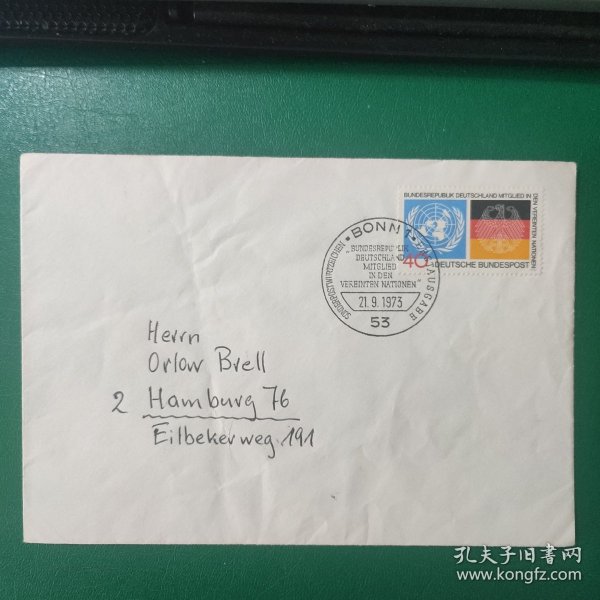 BUNDESREPUBLIK DEUTSCHLAND MITGLIED IN
DEN VEREINTEN NATIONEN
40 DEUTSCHE BUNDESPOST
BONN 1
SONDERPOSTWERTZEICHEN
AUSGABE
"BUNDESREPUBLIK
DEUTSCHLAND
MITGLIED
IN DEN
VEREINTEN NATIONEN"
21.9.1973
53
Herrn
Orlow Brell
2 Hamburg 76
Eilbekerweg 191
孔夫子旧书网
www.kongfz.com